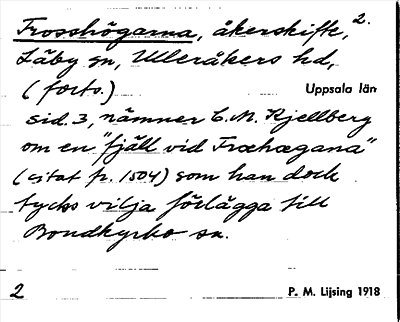 Frosshögarna, åkerskifte, 2.
Läby sn, Ulleråkers hd,
(forts.) Uppsala län
sid. 3, nämner C. M. Kjellberg
om en "fjäll vid Froshøgana"
(citat fr. 1504) som han dock
tycks vilja förlägga till
Bondkyrko sn.
2 P. M. Lijsing 1918